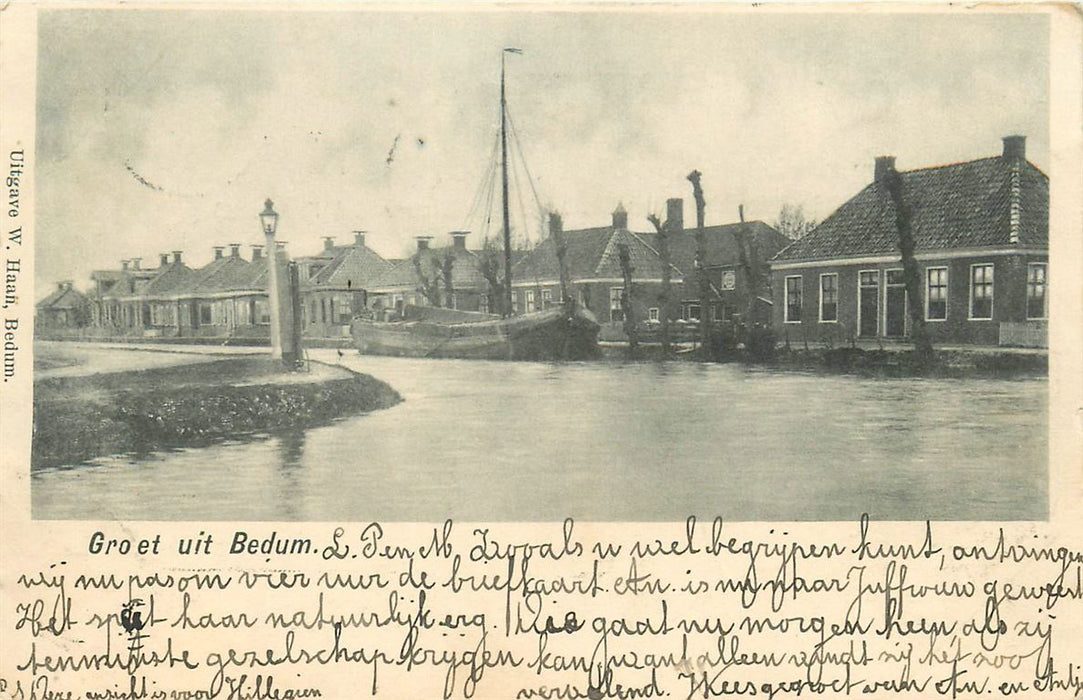 Uitgave W. Haan, Bedum.
Groet uit Bedum. L. P en M. Zooals u wel begrijpen kunt, ontvingen
wij nu pas om vier uur de briefkaart. An. is nu naar Juffrouw geweest
Het spijt haar natuurlijk erg. Rie gaat nu morgen heen als zij
tenminste gezelschap krijgen kan, want alleen vindt zij het zoo
vervelend. Weesgegroet van An en Antje
P.S. Deze ansicht is voor Hillegien